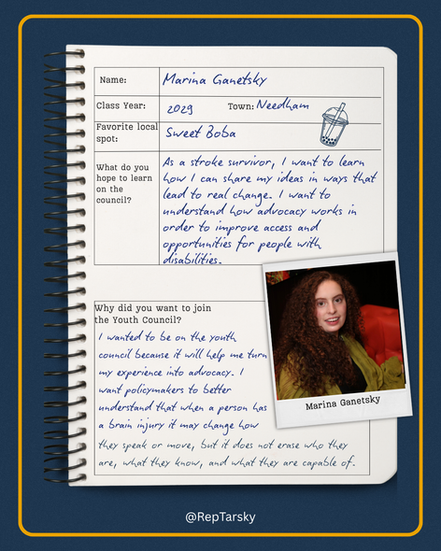 Name: Marina Ganetsky
Class Year: 2029 Town: Needham
Favorite local spot: Sweet Boba
What do you hope to learn on the council?
As a stroke survivor, I want to learn
how I can share my ideas in ways that
lead to real change. I want to
understand how advocacy works in
order to improve access and
opportunities for people with
disabilities.
Why did you want to join
the Youth Council?
I wanted to be on the youth
council because it will help me turn
my experience into advocacy. I
want policymakers to better
understand that when a person has
a brain injury it may change how
they speak or move, but it does not erase who they
are, what they know, and what they are capable of.
Marina Ganetsky
@RepTarsky